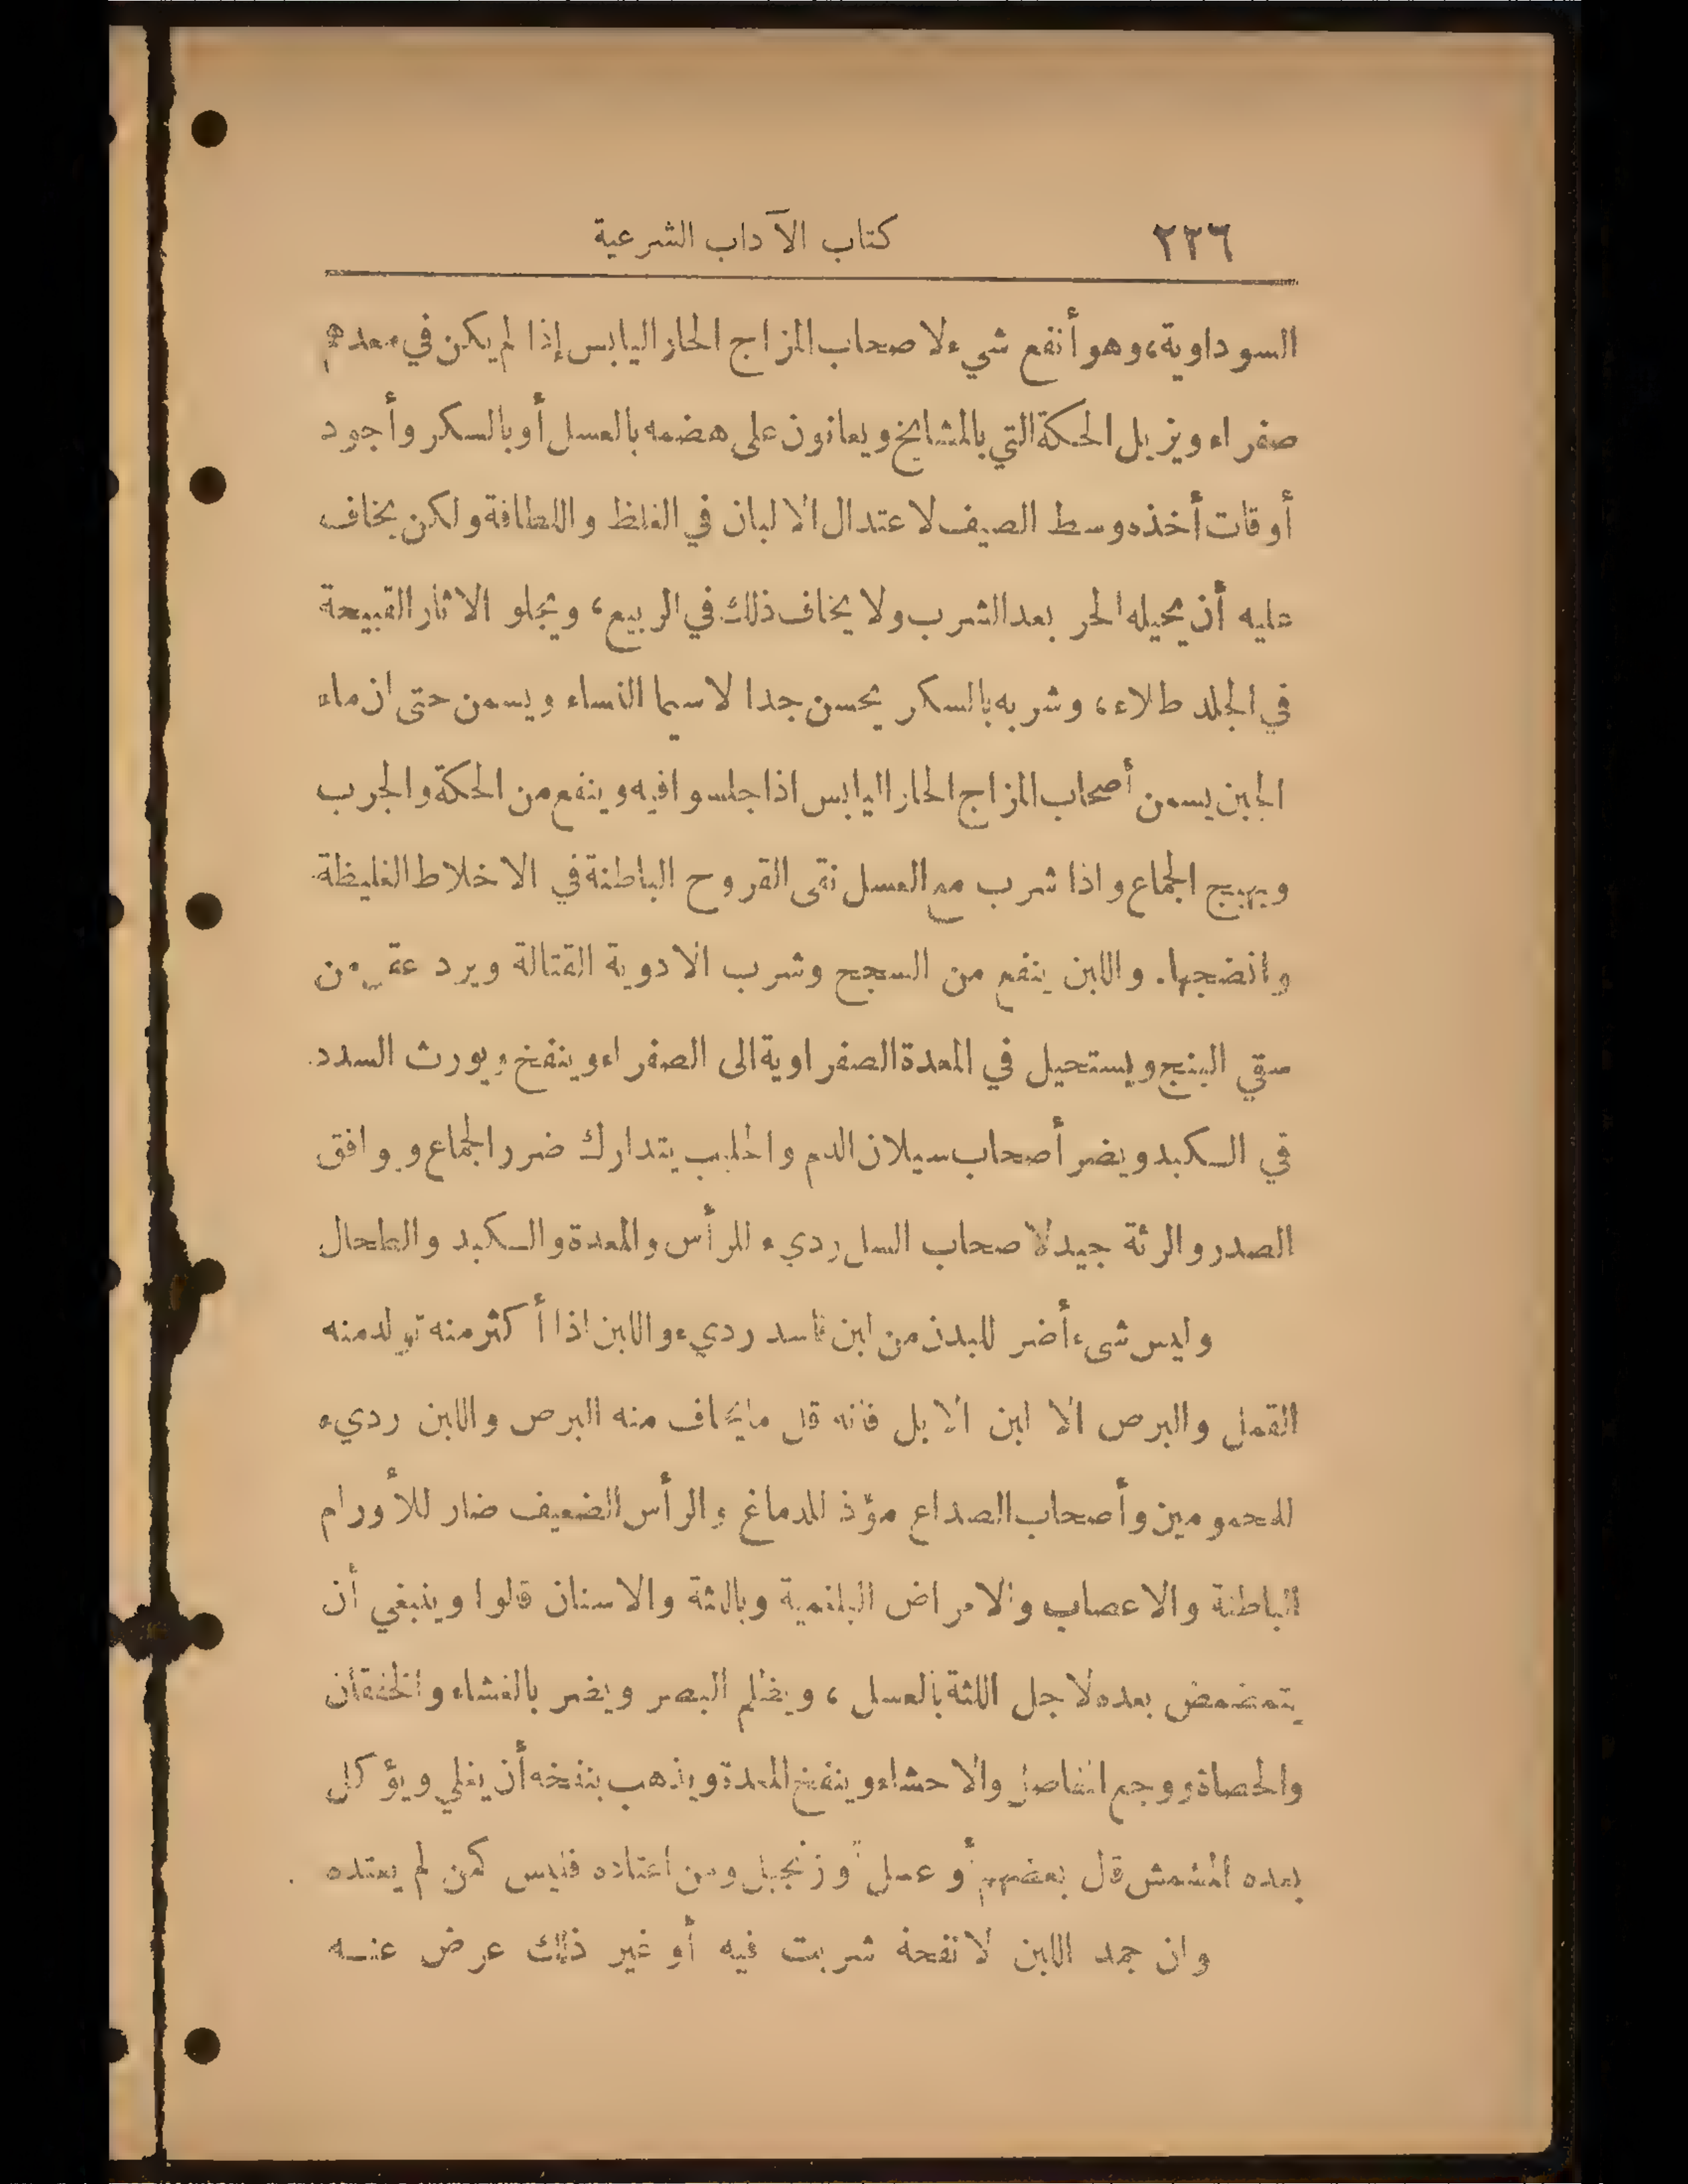 ٢٣٦ كتاب الآداب الشرعية
السوداوية، وهو أنفع شيء لاصحاب المزاج الحار اليابس إذا لم يكن في معدهم
صفراء ويزيل الحكة التي بالمشايخ ويعانون على هضمه بالعسل أو بالسكر وأجود
أوقات أخذه وسط الصيف لاعتدال الالبان في الغلظ واللطافة ولكن يخاف
عليه أن يحيله الحر بعد الشرب ولا يخاف ذلك في الربيع، ويجلو الاثار القبيحة
في الجلد طلاء، وشربه بالسكر يحسن جدا لاسيما النساء ويسمن حتى ان ماء
الجبن يسمن أصحاب المزاج الحار اليابس اذا جلسوا فيه وينفع من الحكة والجرب
ويهيج الجماع واذا شرب مع العسل نقى القروح الباطنة في الاخلاط الغليظة
وانضجها. واللبن ينفع من السحج وشرب الادوية القتالة ويرد عقل من
سقي البنج ويستحيل في المعدة الصفراوية الى الصفراء وينفخ ويورث السدد
في الكبد ويضر أصحاب سيلان الدم والحليب يتدارك ضرر الجماع ويوافق
الصدر والرئة جيد لاصحاب السل رديء للرأس والمعدة والكبد والطحال
وليس شيء أضر للبدن من لبن فاسد رديء واللبن اذا أكثر منه تولد منه
القمل والبرص الا لبن الابل فانه قل ما يخاف منه البرص واللبن رديء
للمحمومين وأصحاب الصداع مؤذ للدماغ والرأس الضعيف ضار للأورام
الباطنة والاعصاب والامراض البلغمية وباللثة والاسنان قالوا وينبغي أن
يتمضمض بعده لاجل اللثة بالعسل، ويظلم البصر ويضر بالغشاء والخفقان
والحصاة ووجع المفاصل والاحشاء وينفخ المعدة ويذهب بنفخه أن يغلي ويؤكل
بعده المشمش قال بعضهم أو عسل أو زنجبيل ومن اعتاده فليس كمن لم يعتده
وان جمد اللبن لانفحة شربت فيه أو غير ذلك عرض عنه